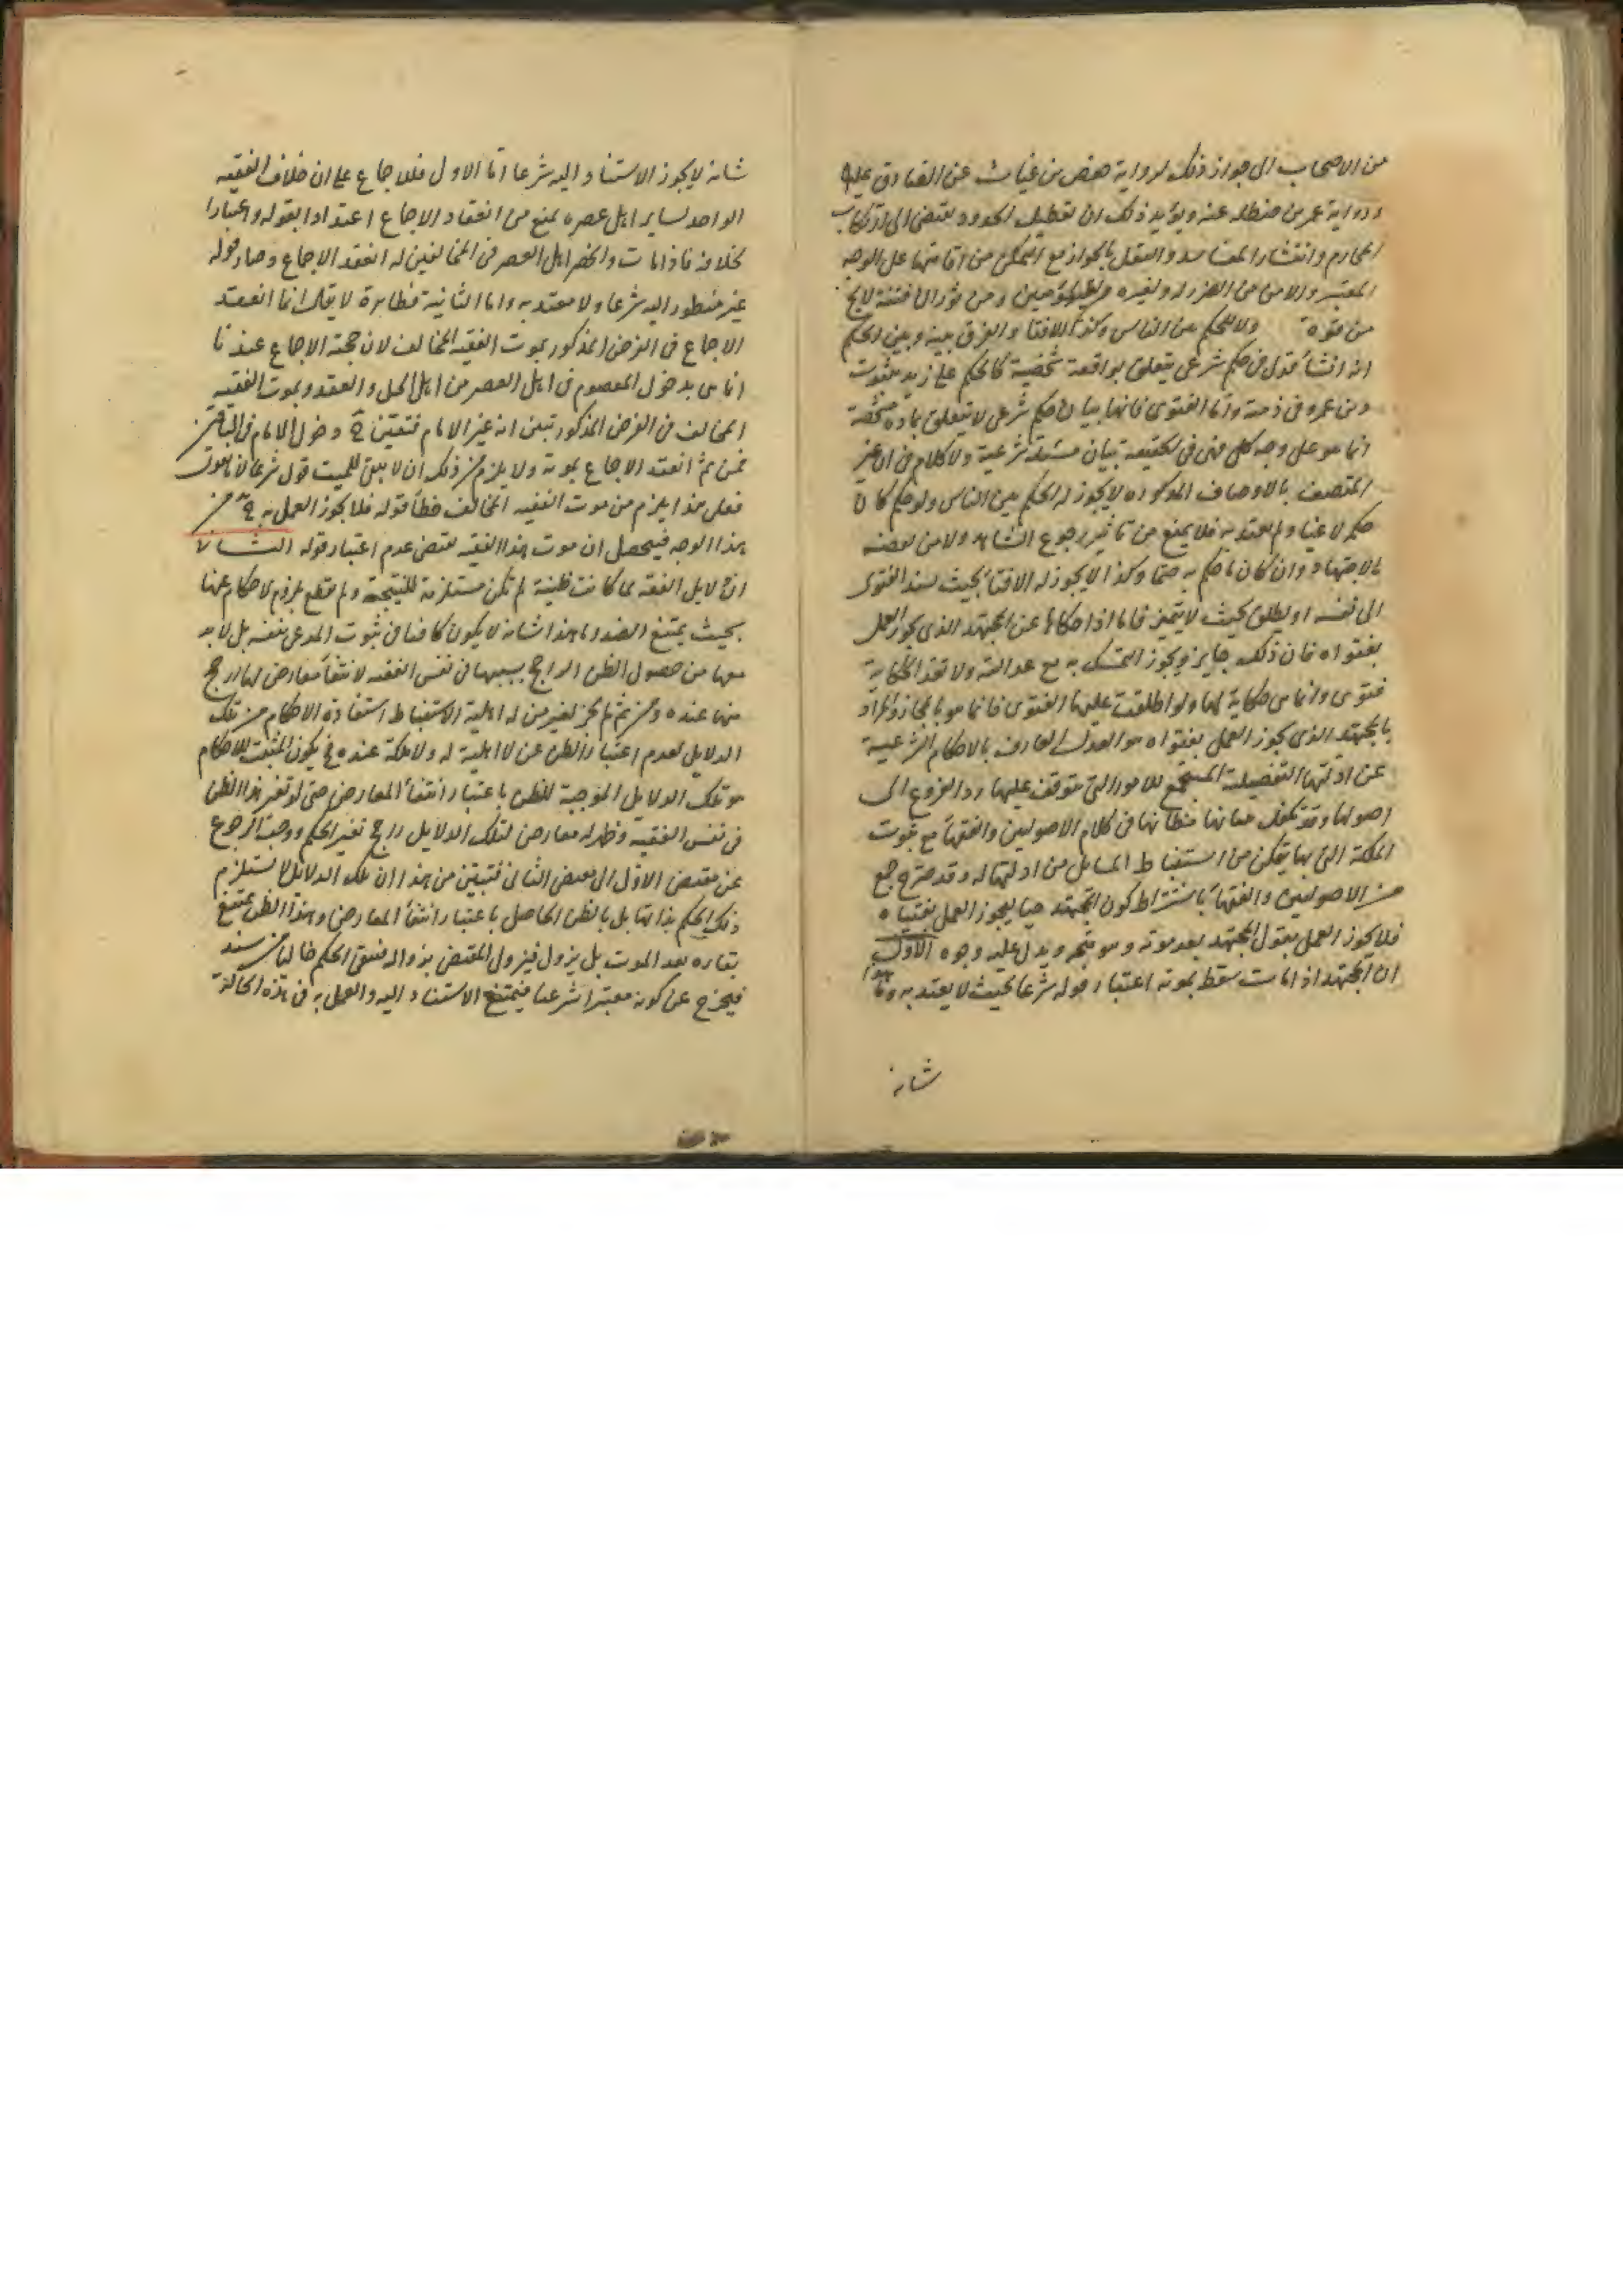 من الاصحاب الى جواز ذلك لرواية حفص بن غياث عن الصادق عليه
ورواية عمر بن حنظله عنه ويؤيد ذلك ان تعطيل الحدود يفضى الى ارتكاب
المحارم وانتشار المفاسد والقول بالجواز مع التمكن من اقامتها على الوجه
المعتبر والامن من الضرر له ولغيره من المؤمنين ومن ثوران فتنة لا يخ
من قوة ولا الحكم بين الناس وكذا الافتا والفرق بينه وبين الحكم
انه انشأ قول فى حكم شرعى يتعلق بواقعة شخصية كالحكم على زيد بثبوت
دين عمرو فى ذمته واما الفتوى فانها بيان حكم شرعى لا يتعلق بماده مشخصة
انما هو على وجه كلى فهى فى الحقيقة بيان مسئلة شرعية ولا كلام فى ان غير
المتصف بالاوصاف المذكوره لا يجوز له الحكم بين الناس ولو حكم كان
حكمه لاغيا ولم يعتد به فلا يمنع من تأثير رجوع الشاهد ولا من نقضه
بالاجتهاد وان كان ما حكم به حقا وكذا لا يجوز له الافتاء بحيث يسند الفتوى
الى نفسه او يطلق بحيث لا يتميز فاما اذا حكاها عن المجتهد الذى يجوز العمل
بفتواه فان ذلك جايز ويجوز التمسك به مع عدالته ولا تعد الحكاية
فتوى وانما هى حكاية لها ولو اطلقت عليها الفتوى فانما هو بالمجاز والمراد
بالمجتهد الذى يجوز العمل بفتواه هو العدل العارف بالاحكام الشرعية
عن ادلتها التفصيلية المستجمع للامور التى يتوقف عليها رد الفروع الى
اصولها وقد تكفل ببيانها مظانها فى كلام الاصوليين والفقهاء مع ثبوت
الملكة التى بها يتمكن من استنباط المسايل من ادلتها له وقد صرح جمع
من الاصوليين والفقهاء باشتراط كون المجتهد حيا ليجوز العمل بفتياه
فلا يجوز العمل بقول المجتهد بعد موته وهو متجه ويدل عليه وجوه الاول
ان المجتهد اذا مات سقط بموته اعتبار قوله شرعا بحيث لا يعتد به وما هذا
شانه
شانه لا يجوز الاستناد اليه شرعا اما الاول فللاجماع على ان خلاف الفقيه
الواحد لساير اهل عصره يمنع من انعقاد الاجماع اعتدادا بقوله واعتبارا
بخلافه فاذا مات وانحصر اهل العصر فى المخالفين له انعقد الاجماع وصار قوله
غير منظور اليه شرعا ولا معتد به واما الثانية فظاهرة لا يقال انما انعقد
الاجماع فى الفرض المذكور بموت الفقيه المخالف لان حجة الاجماع عندنا
انما هى بدخول المعصوم فى اهل العصر من اهل الحل والعقد وبموت الفقيه
المخالف فى الفرض المذكور تبين انه غير الامام فتعين ح دخول الامام فى الباقين
فمن ثم انعقد الاجماع بموته ولا يلزم من ذلك ان لا يبقى للميت قول شرعا لانا نقول
فعلى هذا يلزم من موت الفقيه المخالف خطأ قوله فلا يجوز العمل به ح من
هذا الوجه فيحصل ان موت هذا الفقيه يقتضى عدم اعتبار قوله الثانى
ان دلايل الفقه لما كانت ظنية لم تكن مستلزمة للنتيجة ولم يقطع بلزوم الاحكام عنها
بحيث يمتنع الضد وما هذا شانه لا يكون كافيا فى ثبوت المدعى بنفسه بل لا بد
معها من حصول الظن الراجح بسببها فى نفس الفقيه لانتفاء معارض لها ارجح
منها عنده ومن ثم لم يجز لغير من له اهلية الاستنباط استفادة الاحكام من تلك
الدلايل لعدم اعتبار الظن عن لا اهلية له ولا ملكة عنده فح يكون المثبت للاحكام
هو تلك الدلايل الموجبة للظن باعتبار انتفاء المعارض حتى لو تغير هذا الظن
فى نفس الفقيه وظهر له معارض لتلك الدلايل راجح تغير الحكم ووجب الرجوع
عن مقتضى الاول الى مقتضى الثانى فتبين من هذا ان تلك الدلايل لا تستلزم
ذلك الحكم بذاتها بل بالظن الحاصل باعتبار انتفاء المعارض وهذا الظن يمتنع
بقاؤه بعد الموت بل يزول فيزول المقتضى بزواله فيبقى الحكم خاليا من سند
فيخرج عن كونه معتبرا شرعا فيمتنع الاستناد اليه والعمل به فى هذه الحالة